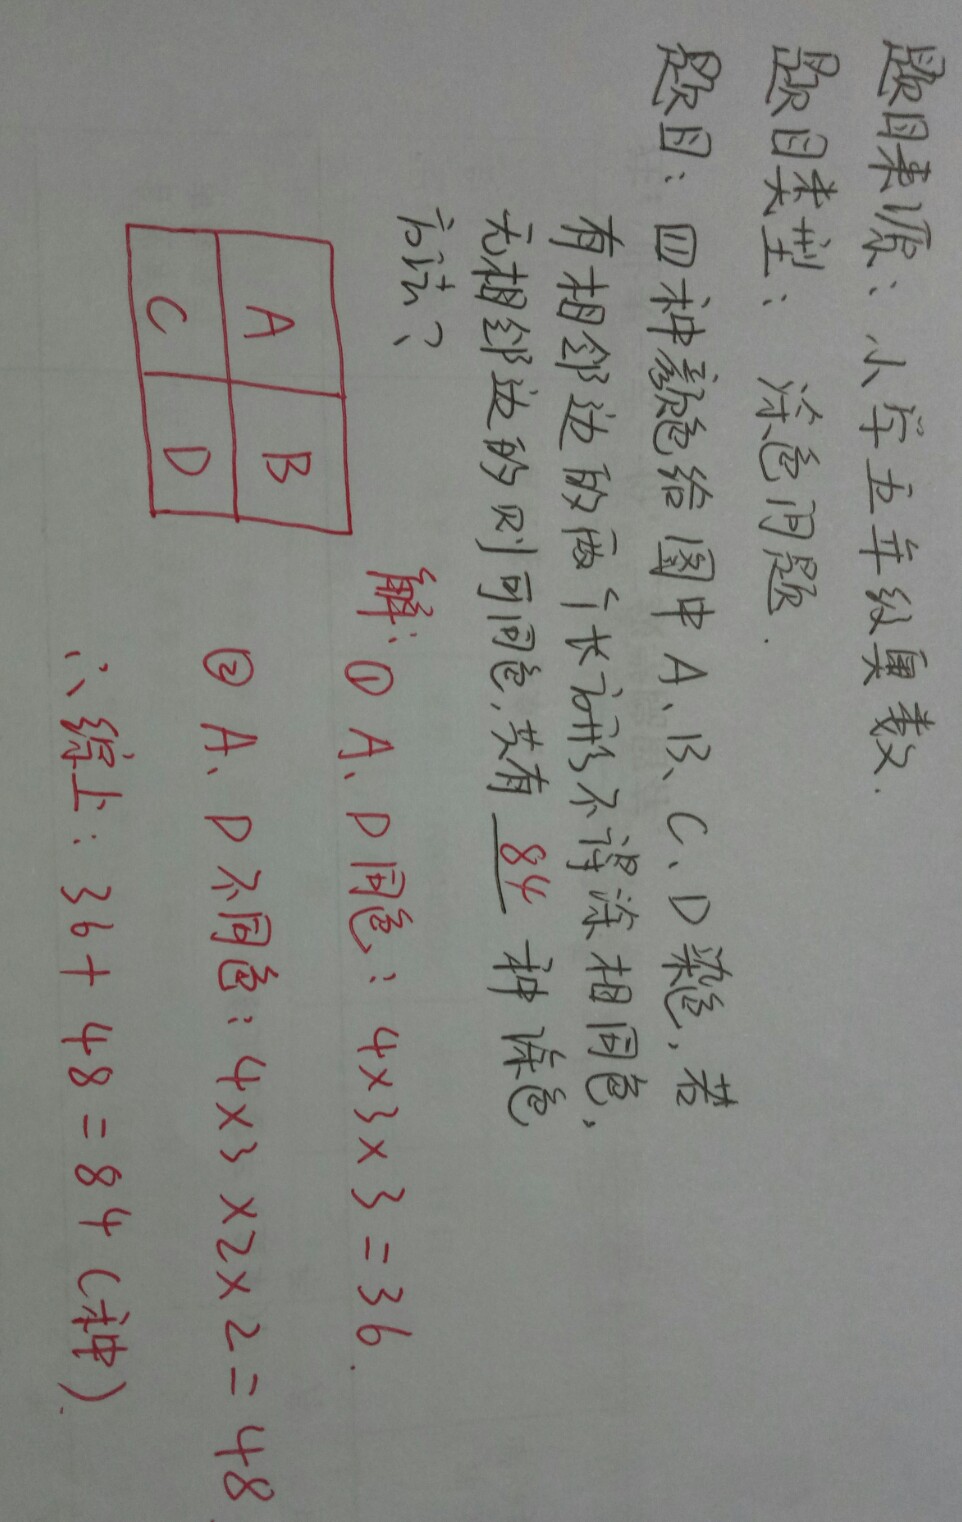 题目来源：小学五年级奥数.
题目类型：涂色问题.
题目：四种颜色给图中A、B、C、D染色，若
有相邻边的两个长方形不得涂相同色，
无相邻边的则可同色，共有 84 种涂色
方法？
A B
C D
解：① A、D同色：4×3×3=36.
② A、D不同色：4×3×2×2=48
∴综上：36+48=84(种).